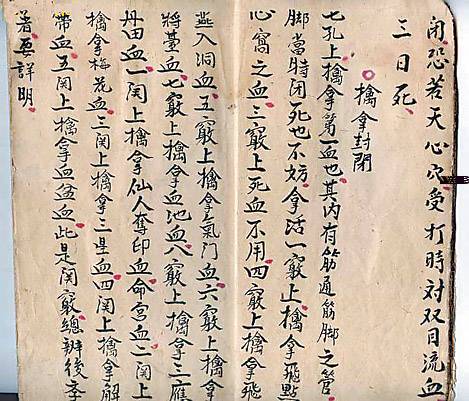 閉恐若天心穴受打時対双目流血
三日死
擒拿封閉
七孔上擒拿第一血也其内有筋通筋脚之管
脚當時闭死也不妨拿活一竅上擒拿飛點
心窩之血三竅上死血不用四竅上擒拿飛
燕入洞血五竅上擒拿氣门血六竅上擒拿
將薹血七竅上擒拿血池血八竅上擒拿三應
丹田血一関上擒拿仙人奪印血命宫血二関上
擒拿梅花血三関上擒拿三星血四関上擒拿解
帶血五関上擒拿血盆血此是関竅總辨後李
著要詳明